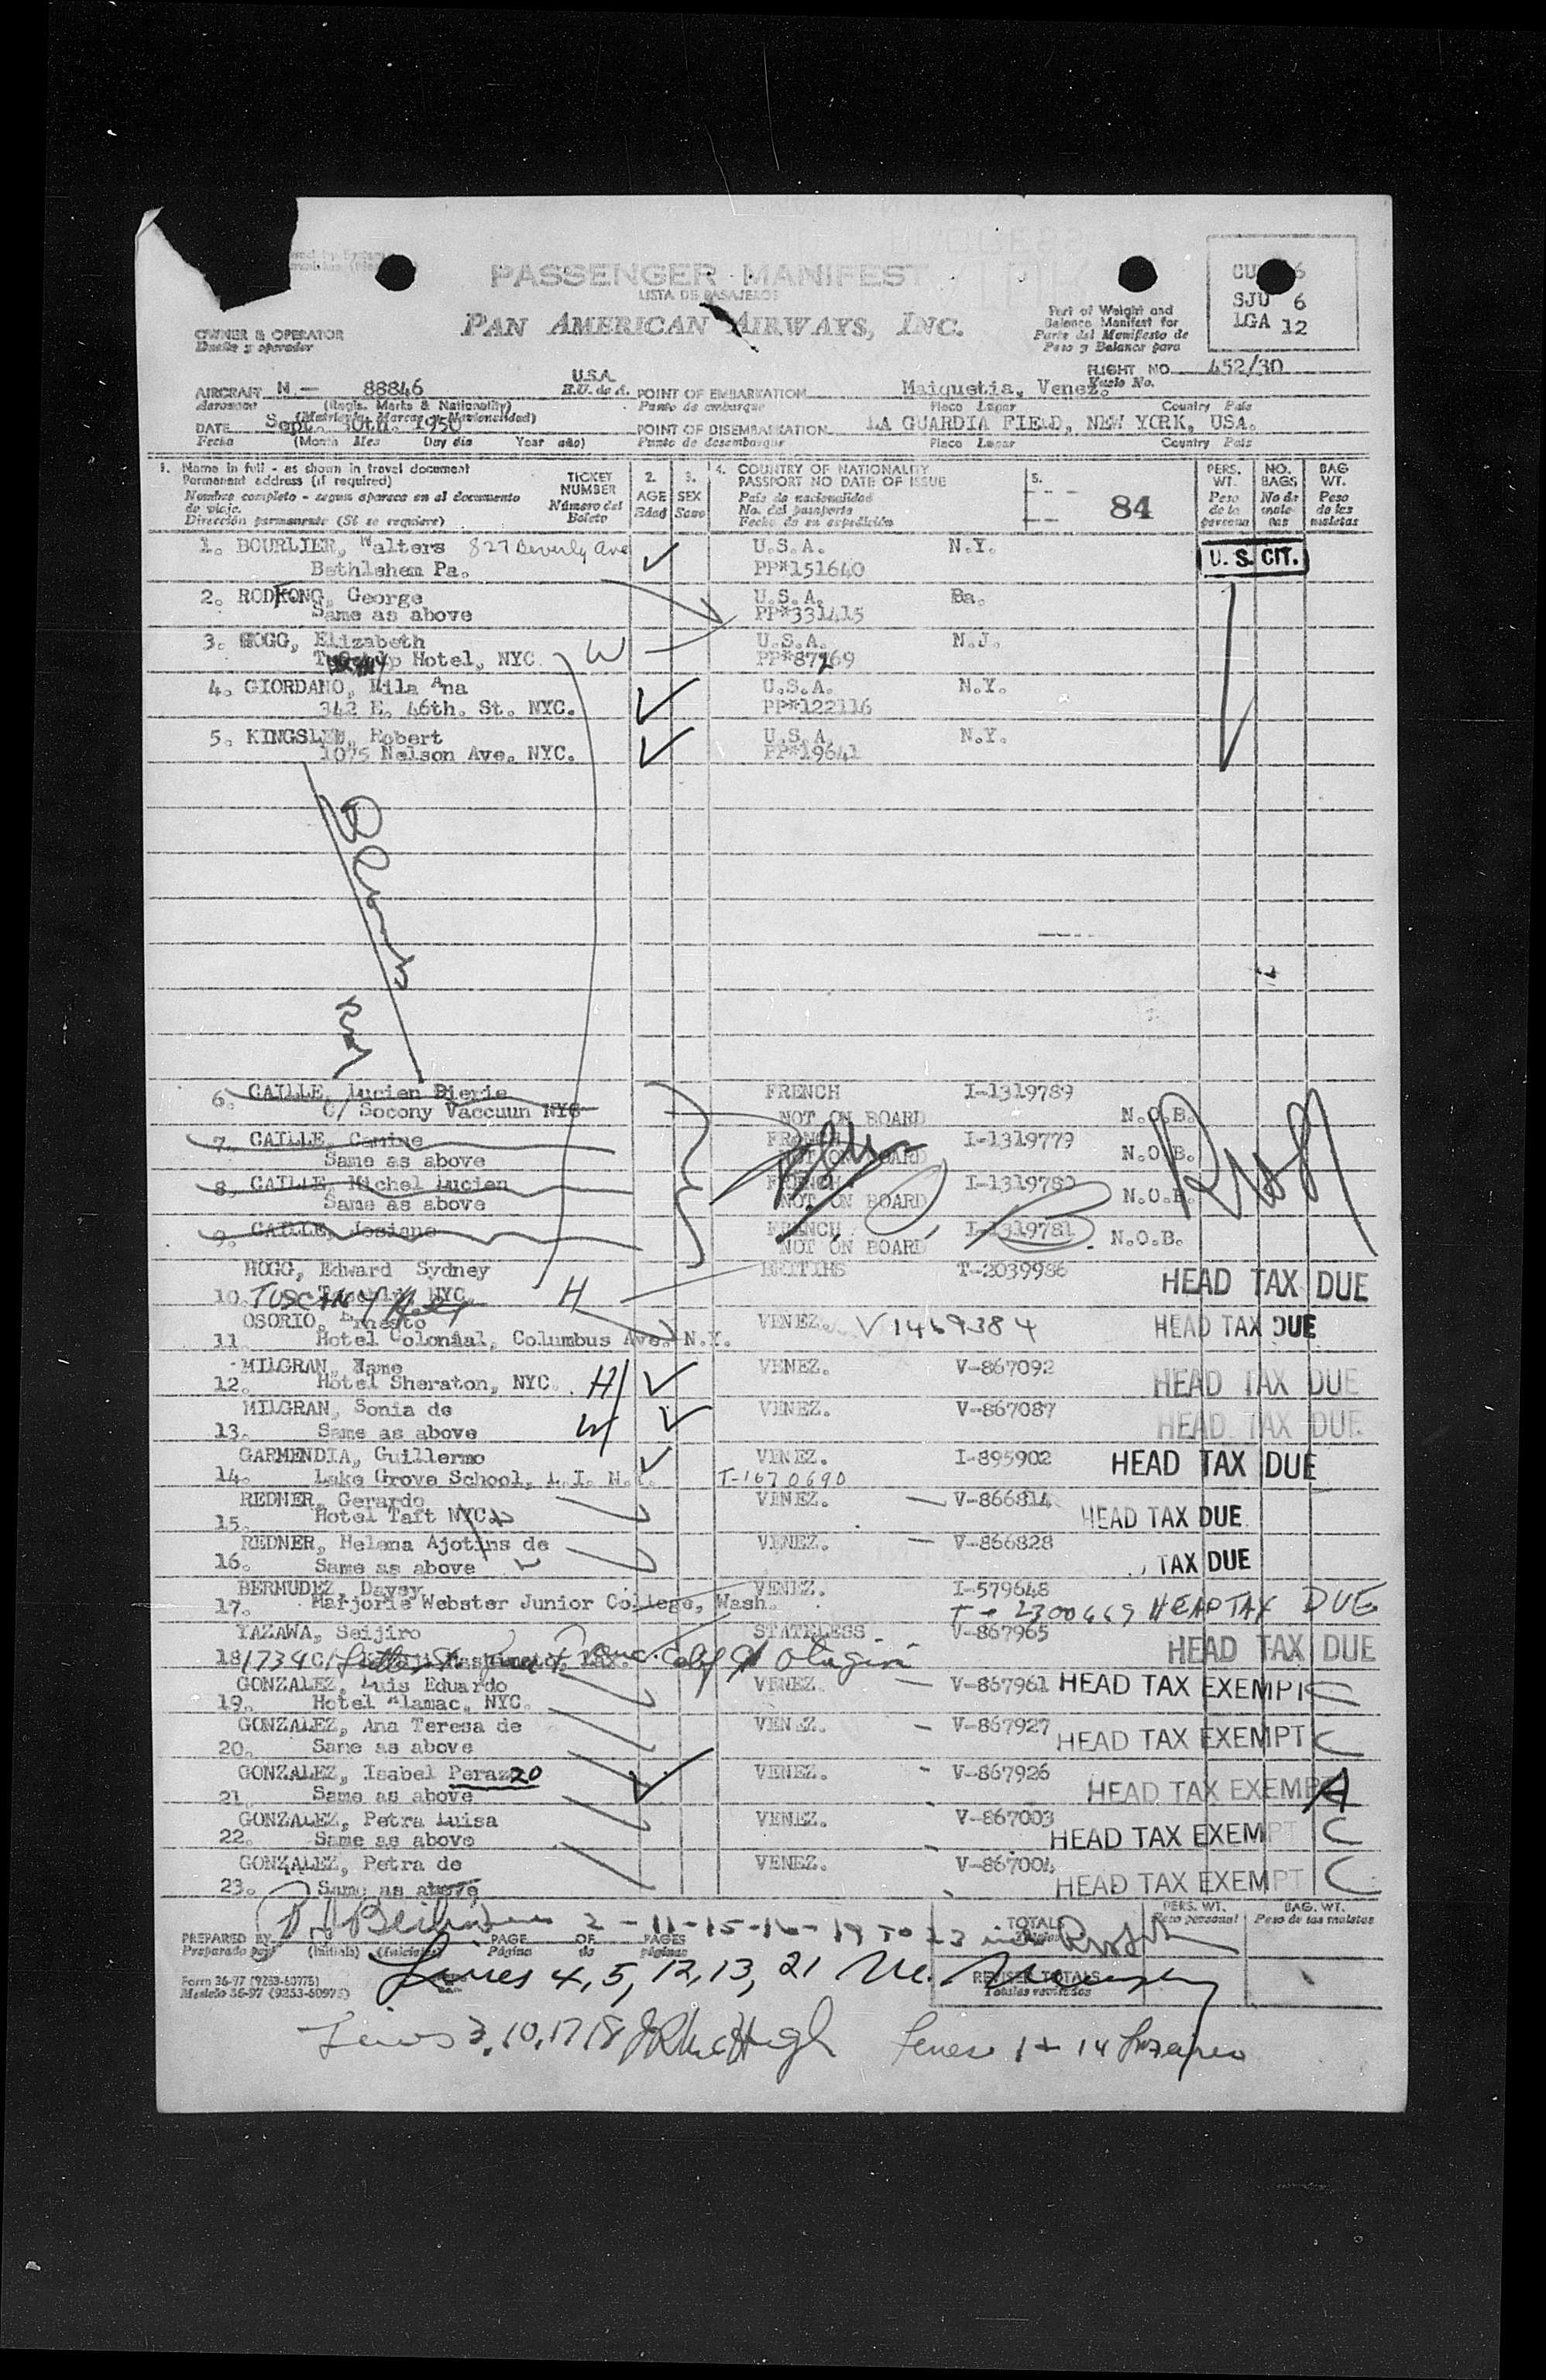 PASSENGER MANIFEST
LISTA DE PASAJEROS
PAN AMERICAN AIRWAYS, INC.
OWNER & OPERATOR
Dueño y operador
Part of Weight and
Balance Manifest for
Parte del Manifiesto de
Peso y Balance para
CU 6
SJU 6
LGA 12
FLIGHT NO. 452/30
Vuelo No.
AIRCRAFT N.- 88846 U.S.A. POINT OF EMBARKATION Maiquetia, Venez.
Aeronave (Regis. Marks & Nationality) E.U. de A. Punto de embarque Place Lugar Country País
(Matrícula, Marcas y Nacionalidad)
DATE Sept. 30th. 1950 POINT OF DISEMBARKATION LA GUARDIA FIELD, NEW YORK, USA.
Fecha (Month Mes Day día Year año) Punto de desembarque Place Lugar Country País
1. Name in full - as shown in travel document
Permanent address (if required)
Nombre completo - según aparece en el documento
de viaje.
Dirección permanente (Si se requiere)
TICKET
NUMBER
Número del
Boleto
2.
AGE
Edad
3.
SEX
Sexo
4. COUNTRY OF NATIONALITY
PASSPORT NO DATE OF ISSUE
País de nacionalidad
No. del pasaporte
Fecha de su expedición
5.
84
PERS.
WT.
Peso
de la
persona
NO.
BAGS
No de
male-
tas
BAG
WT.
Peso
de las
maletas
1. BOURLIER, Walters 827 Beverly Ave U.S.A. N.Y. U. S. CIT.
Bethlehem Pa. PP*151640
2. RODFONG, George U.S.A. Pa.
Same as above PP*331415
3. HOGG, Elizabeth W U.S.A. N.J.
Hotel, NYC PP*87269
4. GIORDANO, Mila Ana U.S.A. N.Y.
342 E. 46th. St. NYC. PP*122116
5. KINGSLEW, Robert U.S.A. N.Y.
1075 Nelson Ave. NYC. PP*19641
6. CAILLE, Lucien Pierie FRENCH I-1319789
C/ Socony Vaccuun NYC NOT ON BOARD N.O.B.
7. CAILLE, Canine FRENCH I-1319779
Same as above NOT ON BOARD N.O.B.
8. CAILLE, Michel Lucien FRENCH I-1319780
Same as above NOT ON BOARD N.O.B.
9. CAILLE, Josiane FRENCH I-1319781
NOT ON BOARD N.O.B.
HOGG, Edward Sydney T-2039986 HEAD TAX DUE
10. TUSCANY Hotel NYC. H
OSORIO, Ernesto VENEZ. V1469384 HEAD TAX DUE
11. Hotel Colonial, Columbus Ave. N.Y.
MILGRAN, Name VENEZ. V-867092 HEAD TAX DUE
12. Hotel Sheraton, NYC. H
MILGRAN, Sonia de VENEZ. V-867087 HEAD TAX DUE
13. Same as above W
GARMENDIA, Guillermo VENEZ. I-895902 HEAD TAX DUE
14. Lake Grove School, L.I. N.Y. T-1670690
REDNER, Gerardo VENEZ. V-866814
15. Hotel Taft NYC. HEAD TAX DUE
REDNER, Helena Ajotins de VENEZ. V-866828
16. Same as above TAX DUE
BERMUDEZ, Davsy VENEZ. I-579648
17. Marjorie Webster Junior College, Wash. T-2300669 HEAD TAX DUE
YAZAWA, Seijiro STATELESS V-867965 HEAD TAX DUE
18. 1734
GONZALEZ, Luis Eduardo VENEZ. V-867961 HEAD TAX EXEMPT C
19. Hotel Alamac, NYC.
GONZALEZ, Ana Teresa de VENEZ. V-867927 HEAD TAX EXEMPT C
20. Same as above
GONZALEZ, Isabel Perazzo VENEZ. V-867926 HEAD TAX EXEMPT A
21. Same as above
GONZALEZ, Petra Luisa VENEZ. V-867003 HEAD TAX EXEMPT C
22. Same as above
GONZALEZ, Petra de VENEZ. V-867004 HEAD TAX EXEMPT C
23. Same as above
2-11-15-16-19 to 23
PREPARED BY PAGE OF PAGES TOTAL PERS. WT. BAG. WT.
Preparado por (Initials) (Iniciales) Página de páginas Peso personal Peso de las maletas
Form 36-97 (9253-50975)
Modelo 36-97 (9253-50975)
REVISED TOTALS
Totales revisados
Lines 4, 5, 12, 13, 21
Lines 3, 10, 17, 18 J R McHugh Lines 1 + 14